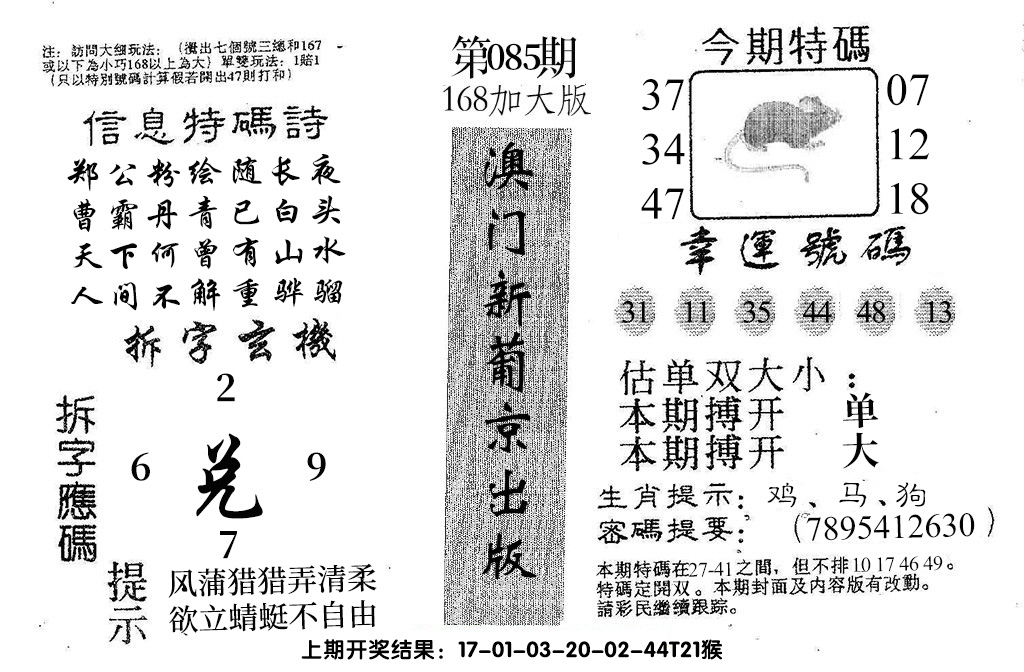 注：訪問大细玩法：（攪出七個號三總和167
或以下為小巧168以上為大）單雙玩法：1賠1
（只以特別號碼計算假若開出47則打和）
信息特碼詩
郑公粉绘随长夜
曹霸丹青已白头
天下何曾有山水
人间不解重骅骝
拆字玄機
拆字應碼
2
6 兑 9
7
提示
风蒲猎猎弄清柔
欲立蜻蜓不自由
第085期
168加大版
澳门新葡京出版
今期特碼
37 07
34 12
47 18
幸運號碼
31 11 35 44 48 13
估单双大小：
本期搏开 单
本期搏开 大
生肖提示：鸡、马、狗
密碼提要：（7895412630）
本期特碼在27-41之間，但不排10 17 46 49。
特碼定開双。本期封面及内容版有改動。
請彩民繼續跟踪。
上期开奖结果：17-01-03-20-02-44T21猴